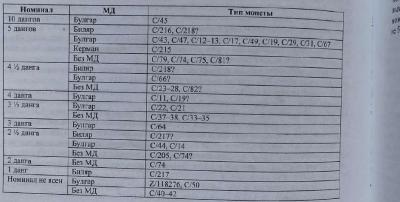 Номинал МД Тип монеты
10 дангов Булгар С/45
5 дангов Биляр С/216, С/218?
Булгар С/43, С/47, С/12–13, С/17, С/49, С/19, С/29, С/31, С/67
Керман С/215
Без МД С/79, С/74, С/75, С/81?
4 ½ данга Биляр С/218?
Булгар С/66?
Без МД С/23–28, С/82?
4 данга Булгар С/11, С/19?
3 ½ данга Булгар С/22, С/21
Без МД С/37–38, С/33–35
3 данга Булгар С/64
2 ½ данга Биляр С/217?
Булгар С/44, С/14
Без МД С/205, С/74?
2 данга Без МД С/74
1 данг Биляр С/217
Номинал не ясен Булгар Z/118276, С/50
Без МД С/40–42